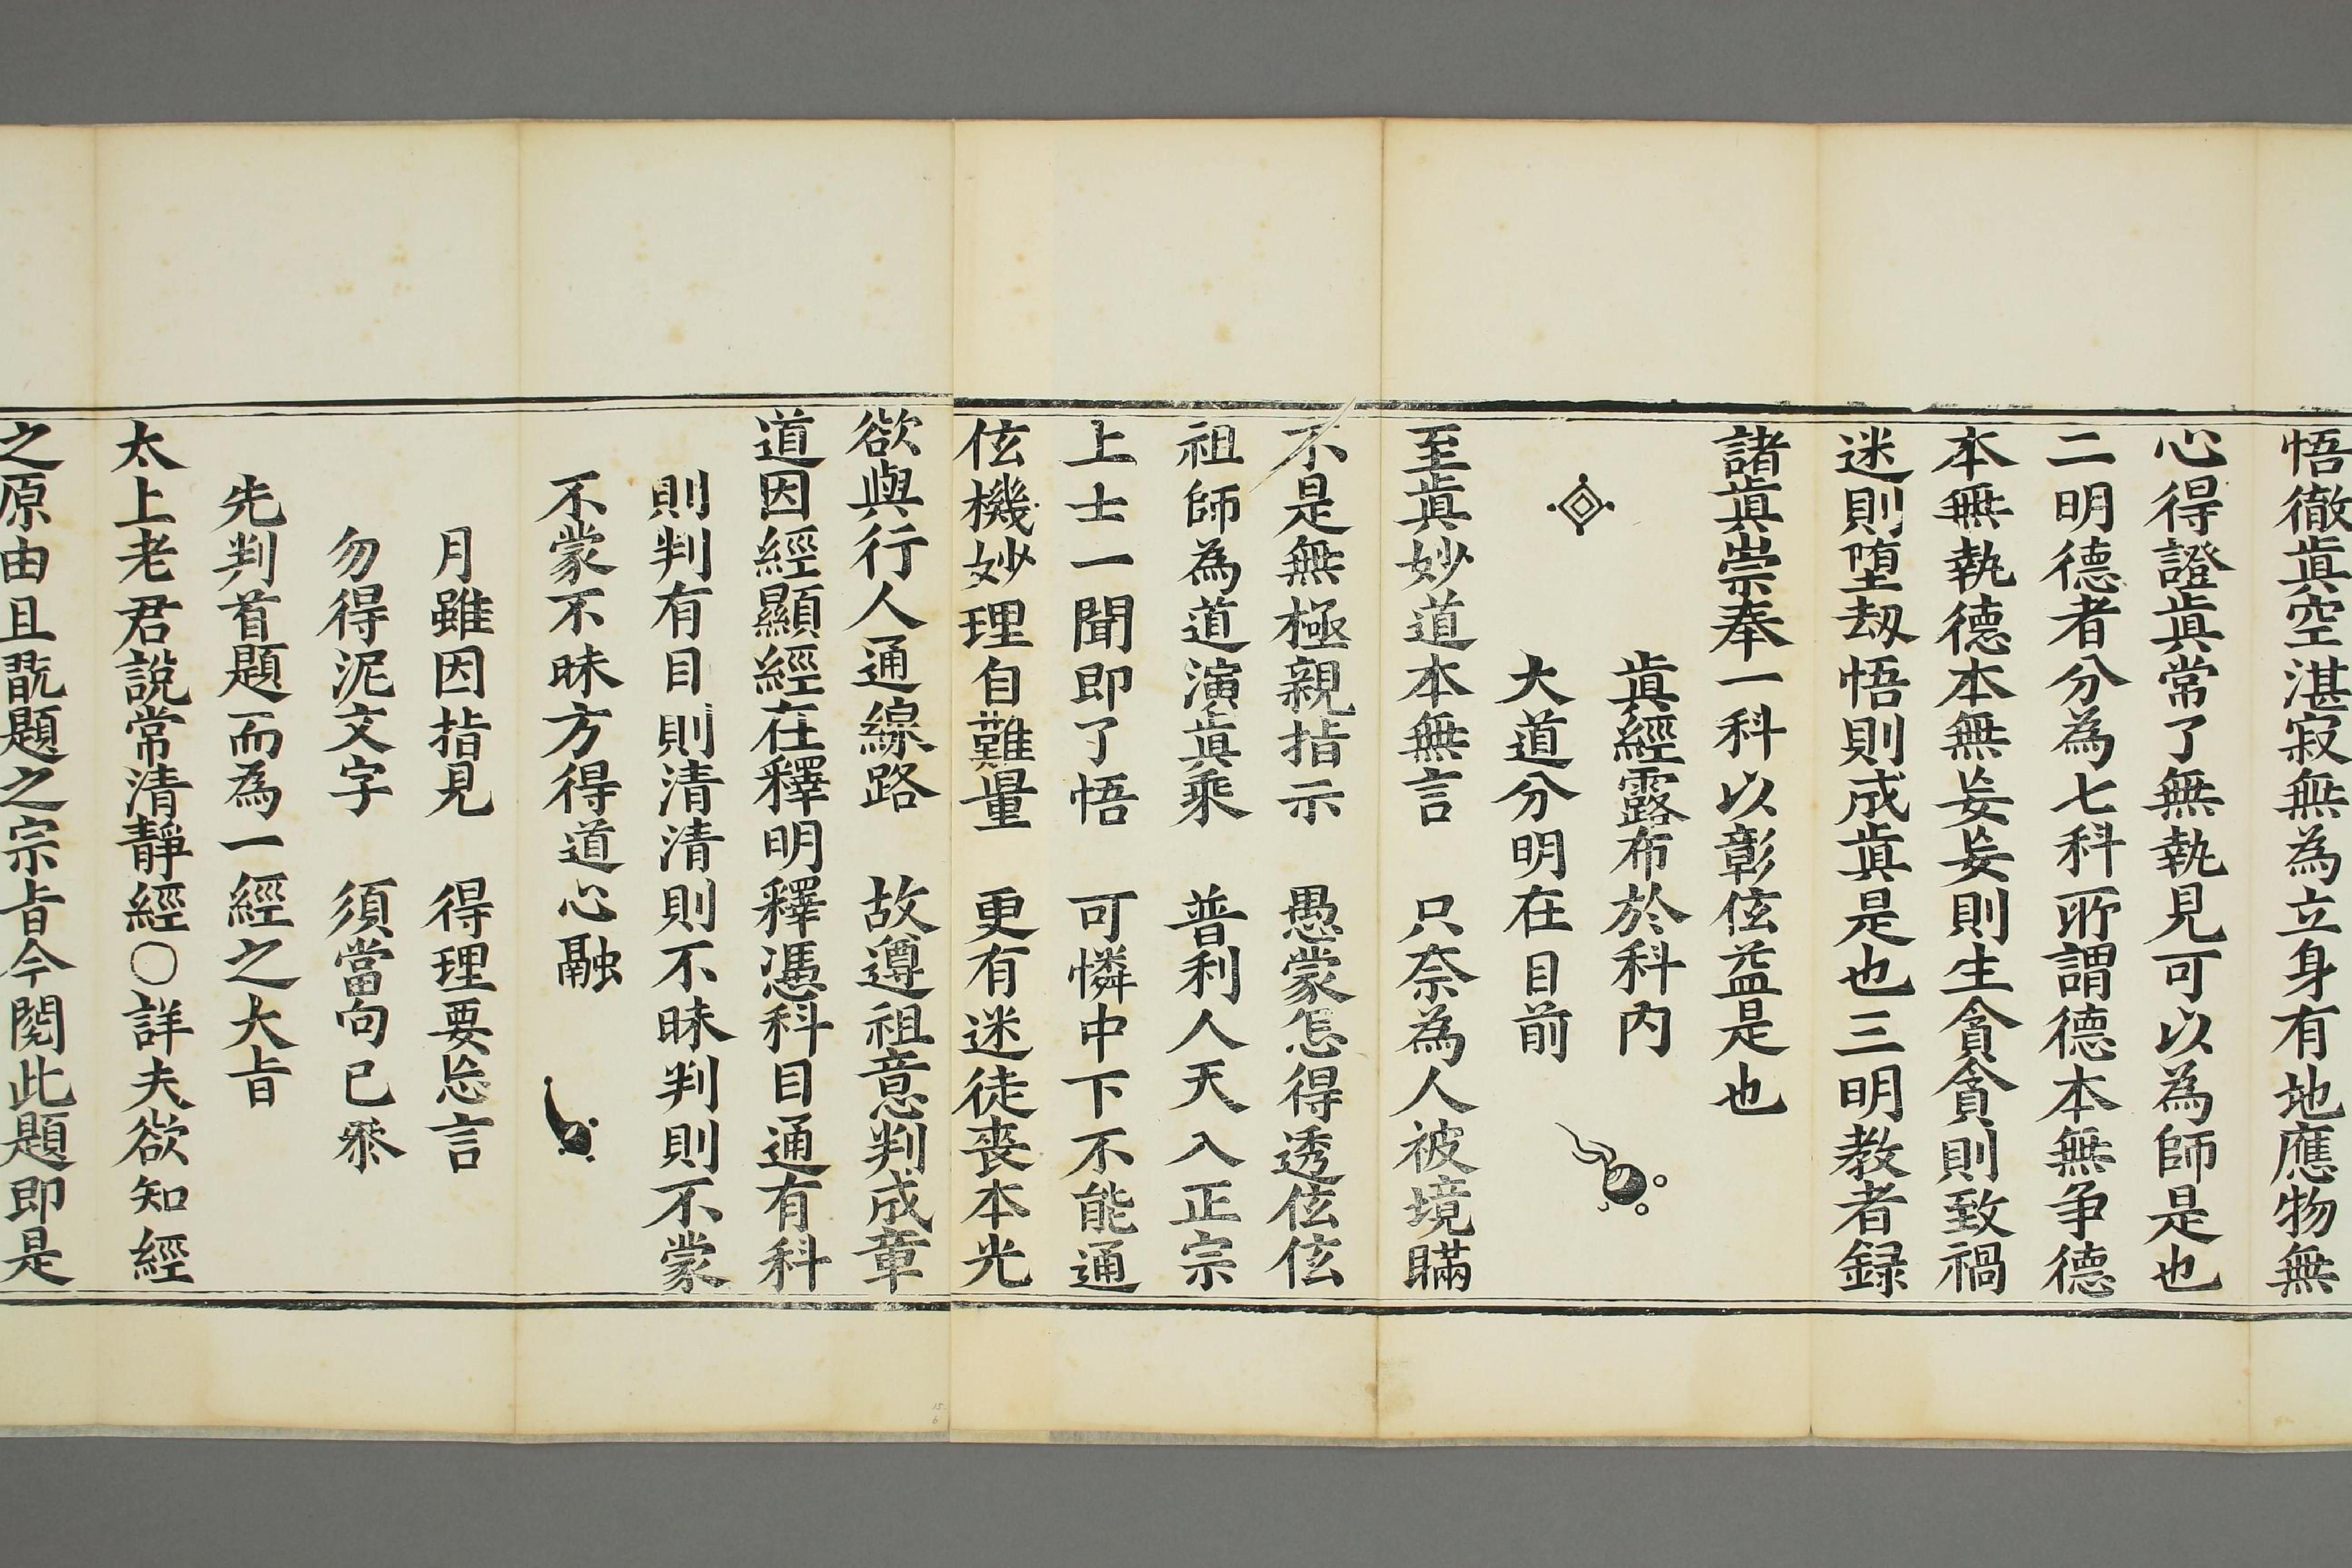 悟徹眞空湛寂無為立身有地應物無
心得證眞常了無執見可以為師是也
二明德者分為七科所謂德本無争德
本無執德本無妄妄則生貪貪則致禍
迷則堕劫悟則成眞是也三明教者録
諸眞崇奉一科以彰伭益是也
眞經露布於科内
大道分明在目前
至眞妙道本無言　只奈為人被境瞞
不是無極親指示　愚蒙怎得透伭伭
祖師為道演眞乘　普利人天入正宗
上士一聞即了悟　可憐中下不能通
伭機妙理自難量　更有迷徒丧本光
欲與行人通線路　故遵祖意判成章
道因經顯經在釋明釋憑科目通有科
則判有目則清清則不昧判則不蒙
不蒙不昧方得道心融
月雖因指見　得理要忘言
勿得泥文字　須當向已叅
先判首題而為一經之大㫖
太上老君說常清靜經〇詳夫欲知經
之原由且翫題之宗㫖今閱此題即是